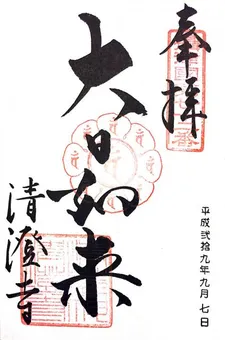 奉拝
大日如来
清澄寺
平成弐拾九年九月七日